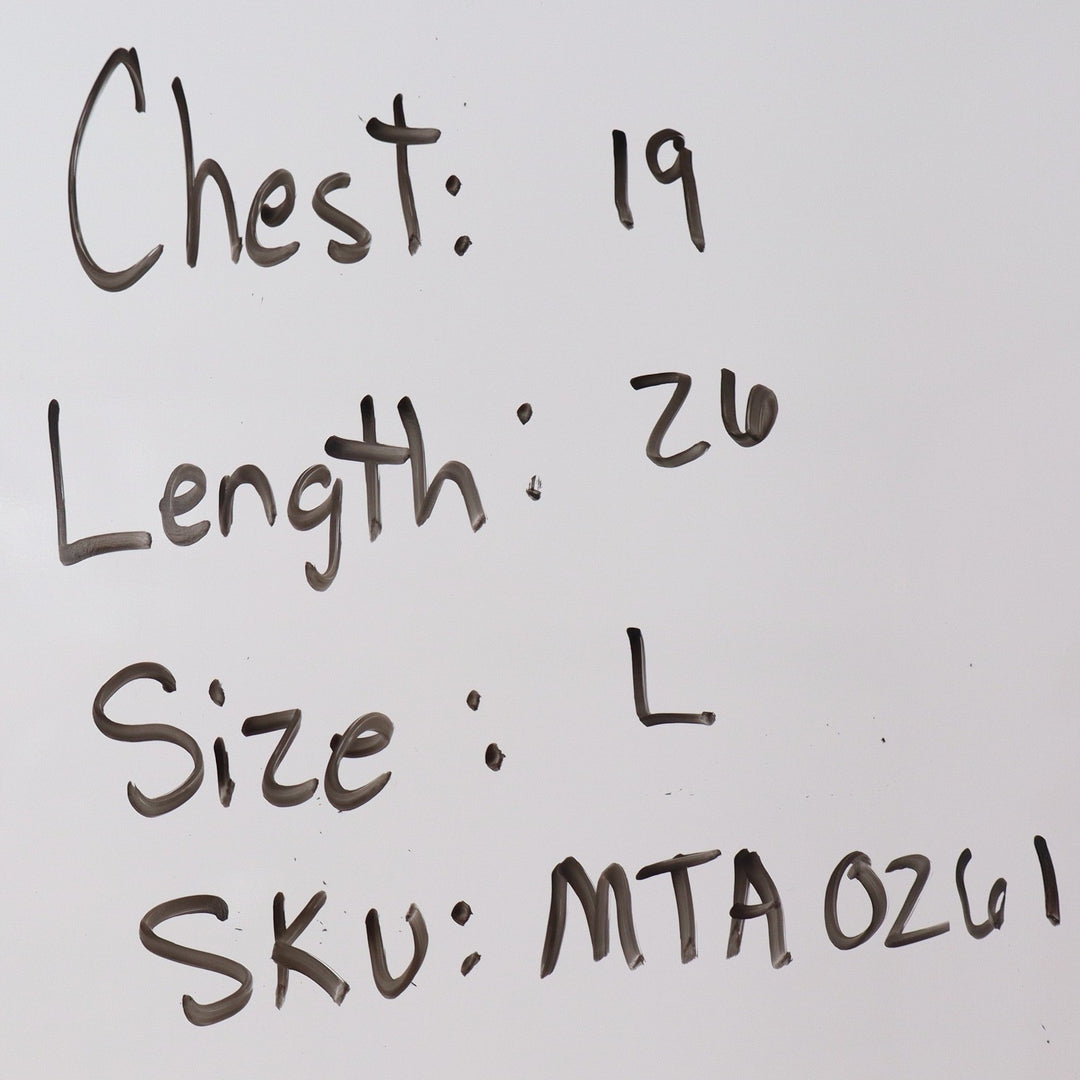 Chest: 19
Length: 26
Size: L
SKU: MTA0261